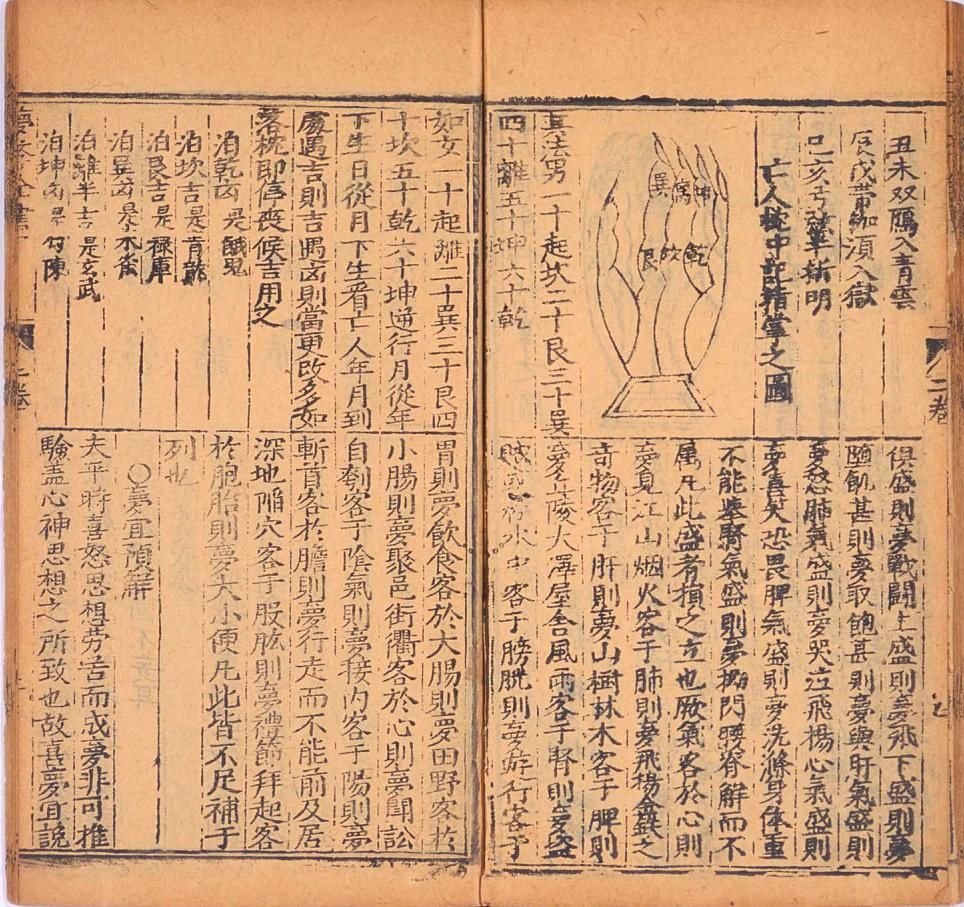 丑未双鴈入青雲
辰戌帶枷湏入獄
巳亥指明
亡人枕中記指掌之圖
巽离坤
艮坎乾
其法男一十起坎二十艮三十巽
四十離五十坤六十乾
如女一十起離二十巽三十艮四
十坎五十乾六十坤逆行月從年
下生日從月下生看亡人年月到
處遇吉則吉遇凶則當更改多如
落枕即停喪候吉用之
泊乾凶是餓鬼
泊坎吉是青龍
泊艮吉是禄庫
泊巽凶是木雀
泊離半吉是玄武
泊坤凶是勾陳
二卷
俱盛則夢戰闘上盛則夢飛下盛則夢
墮飢甚則夢取飽甚則夢與肝氣盛則
夢怒肺氣盛則夢哭泣飛揚心氣盛則
夢喜笑恐畏脾氣盛則夢洗滌身体重
不能氣盛則夢閃腰脊解而不
属凡此盛者損之立也厥氣客於心則
夢見江山烟火客于肺則夢飛揚金鉄之
奇物客于肝則夢山樹林木客于脾則
夢丘陵大澤屋舍風雨客于腎則夢盗
賊水中客于膀胱則夢遊行客于
胃則夢飲食客於大腸則夢田野客於
小腸則夢聚邑街衢客於心則夢聞訟
自刳客于陰氣則夢接内客于陽則夢
斬首客於膽則夢行走而不能前及居
深地陷穴客于股肱則夢禮節拜起客
於胞胎則夢大小便凡此皆不足補于
列也
○夢宜預解
夫平時喜怒思想勞苦而成夢非可推
驗盖心神思想之所致也故喜夢宜說